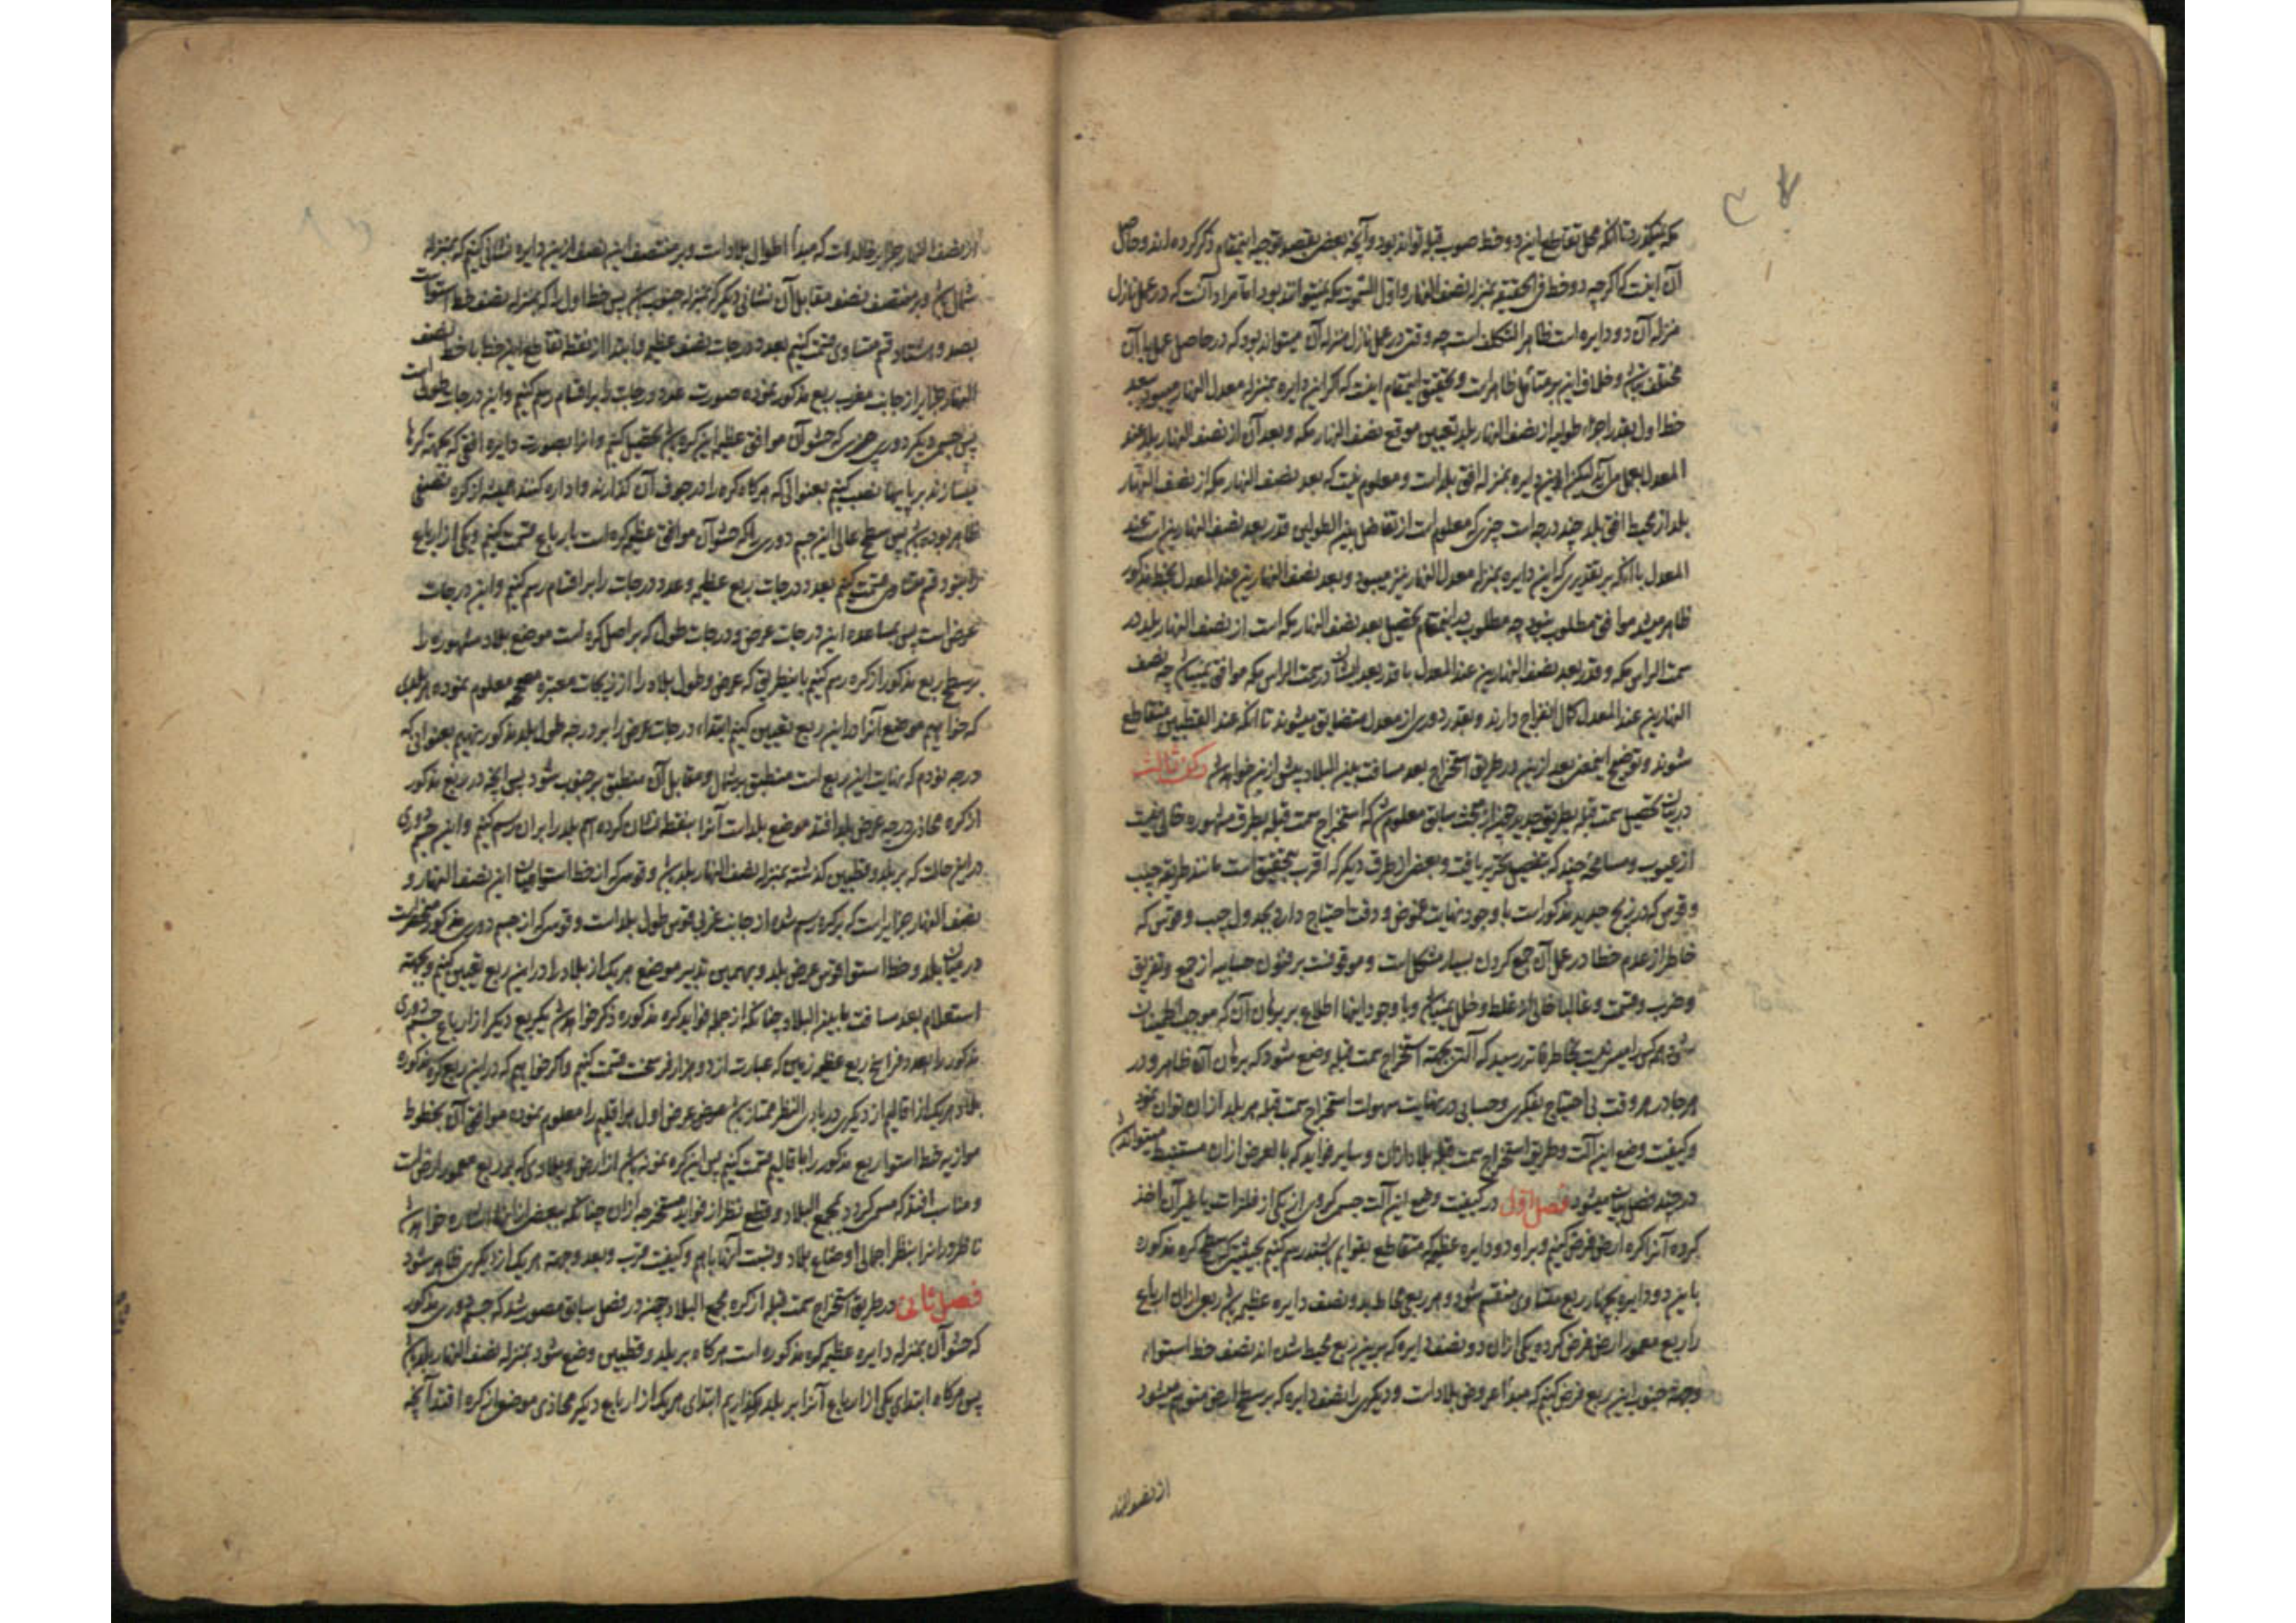 مکه میگذرد تا آنکه محل تقاطع این دو خط صوب قبله تواند بود و آنچه بعضی بقصد توجیه اینمقام ذکر کرده اند و حاصل
آن اینست که اگرچه دو خط فی الحقیقه بمنزله نصف النهار و اول السموت مکه نمیتواند بود اما مراد آنست که در عمل نازل
منزله آن دو دایره است ظاهر التکلف است چه وقتی در عمل نازل منزله آن میتواند بود که در حاصل عمل با آن
مختلف نباشد و خلاف این بر متأمل ظاهر است و تحقیق اینمقام اینست که اگر این دایره بمنزله معدل النهار میبود بعد
خط اول بقدر اجزاء طولیه از نصف النهار بلد تعیین موقع نصف النهار مکه و بعد آن از نصف النهار بلد عند
المعدل بعمل می آید لیکن این دایره بمنزله افق بلد است و معلوم نیست که بعد نصف النهار مکه از نصف النهار
بلد از محیط افق بلد چند درجه است چیزی که معلوم است از تفاضل بین الطولین قدر بعد نصف النهارین است عند
المعدل با آنکه بر تقدیری که این دایره بمنزله معدل النهار نیز میبود و بعد نصف النهارین عند المعدل بخط مذکور
ظاهر میشد موافق مطلوب نبود چه مطلوب در اینمقام تحصیل بعد نصف النهار مکه است از نصف النهار بلد در
سمت الراس مکه و قدر بعد نصف النهارین عند المعدل با قدر بعد ایشان در سمت الراس مکه موافق نمیباشد چه نصف
النهارین عند المعدل کمال انفراج دارند و بقدر دوری از معدل متضایق میشوند تا آنکه عند القطبین متقاطع
شوند و توضیح اینمعنی بعد ازین در طریق استخراج بعد مسافت بین البلاد بیش ازین خواهد شد رکن ثالث
در بیان تحصیل سمت قبله بطریق جدید چون از مبحث سابق معلوم شد که استخراج سمت قبله بطرق مشهوره خالی نیست
از عیوب و مسامحه چند که تفصیل تحریر یافت و بعضی از طرق دیگر که اقرب بتحقیق است مانند طریقه جیب
و قوس که در زیج جدید مذکور است با وجود نهایت غموض و دقت احتیاج دارد بجدول جیب و قوس که
خاطر از عدم خطا در عمل آن جمع کردن بسیار مشکل است و موقوفست بر فنون حسابیه از جمع و تفریق
و ضرب و قسمت و غالبا خالی از غلط و خلل نمیباشد و با وجود اینها اطلاع بر برهان آن که موجب اطمینان
شود هر کس را میسر نیست بخاطر قاصر رسید که آلتی بجهة استخراج سمت قبله وضع شود که برهان آن ظاهر و در
هر جا در هر وقت بی احتیاج بفکری و حسابی در نهایت سهولت استخراج سمت قبله هر بلد از آن توان نمود
و کیفیت وضع این آلت و طریق استخراج سمت قبله بلاد از آن و سایر فواید که بالعرض از آن مستنبط میتواند شد
در چند فصل بیان میشود فصل اول در کیفیت وضع این آلت جسم کروی از یکی از فلزات یا غیر آن اخذ
کرده آنرا کره ارض فرض کنیم و بر او دو دایره عظیمه که متقاطع بقوایم باشند رسم کنیم بحیثیتی که سطح کره مذکوره
باین دو دایره بچهار ربع متساوی منقسم شود و هر ربعی محاط بدو نصف دایره عظیمه باشد ربعی از آن ارباع
را ربع معمور ارض فرض کرده یکی از آن دو نصف دایره که برین ربع محیط شده اند نصف خط استواء
و جهة جنوب این ربع فرض کنیم که مبدأ عروض بلاد است و دیگری را نصف دایره که بر سطح ارض متوهم میشود
از نصف النهار
از نصف النهار جزایر خالدات که مبدأ اطوال بلاد است و بر منتصف این نصف ازین دایره نشانی کنیم که بمنزله
شمال باشد و بر منتصف نصف مقابل آن نشانی دیگر که بمنزله جنوب باشد پس خط اول را که بمنزله نصف خط استواست
بصد و هشتاد قسم متساوی قسمت کنیم بعدد درجات نصف عظیمه و ابتدا از نقطه تقاطع این خط با خط نصف
النهار جزایر از جانب مغرب ربع مذکور نموده صورت عدد درجات را بر اقسام رسم کنیم و این درجات طول است
پس جسمی دیگر دوری مجوف که حشو آن موافق عظیمه این کره باشد تحصیل کنیم و آنرا بصورت دایره افقی که بجهة کرها
میسازند بر پایها نصب کنیم بعنوانی که هرگاه کره را در جوف آن گذارند و اداره کنند همیشه از کره نصفی
ظاهر بوده باشد پس سطح عالی این جسم دوری را که حشو آن موافق عظیمه کره است بارباع قسمت کنیم و یکی از ارباع
را بنود قسم متساوی قسمت کنیم بعدد درجات ربع عظیمه و عدد درجات را بر اقسام رسم کنیم و این درجات
عرض است پس بمساعده این درجات عرض و درجات طول که بر اصل کره است موضع بلاد مشهوره را
بر سطح ربع مذکور از کره رسم کنیم باینطریق که عرض و طول بلاد را از زیجات معتبره صحیحه معلوم نموده و هر بلدی
که خواهیم موضع آنرا در این ربع تعیین کنیم ابتداء درجات عرض را بر درجه طول بلد مذکور نهیم بعنوانی که
درجه نودم که نهایت این ربع است منطبق بر شمال و مقابل آن منطبق بر جنوب شود پس آنچه در ربع مذکور
از کره محاذی درجه عرض بلد افتد موضع بلد است آنرا بنقطه نشان کرده اسم بلد را بر آن رسم کنیم و این جسم دوری
در این حالت که بر بلد و قطبین گذشته بمنزله نصف النهار بلد باشد و قوسی که از خط استوا میان این نصف النهار و
نصف النهار جزایر است که بر کره رسم شده از جانب غربی قوس طول بلد است و قوسی که از جسم دوری مذکور محصور است
در میان بلد و خط استوا قوس عرض بلد و بهمین تدبیر موضع هر یک از بلاد را در این ربع تعیین کنیم و بجهة
استعلام بعد مسافت ما بین البلاد چنانکه از جمله فواید کره مذکوره ذکر خواهد شد یک ربع دیگر از ارباع جسم دوری
مذکور را بعدد فراسخ ربع عظیمه زمین که عبارت از دو هزار فرسخست قسمت کنیم و اگر خواهیم که در این ربع کره مذکوره
بلاد هر یک از اقالیم از دیگری در بادی النظر ممتاز باشد عرض عرض اول هر اقلیم را معلوم نموده موافق آن بخطوط
موازیه خط استوا ربع مذکور را باقالیم قسمت کنیم پس این کره نمونه باشد از ارض و بلادی که بر ربع معمور ارض است
و مناسب افتد که مسمی گردد بمجمع البلاد و قطع نظر از فواید مستخرجه از آن چنانکه ببعضی از آنها اشاره خواهد شد
ناظر در آنرا بنظر اجمالی اوضاع بلاد و نسبت آنها باهم و کیفیت قرب و بعد و جهة هر یک از دیگری ظاهر شود
فصل ثانی در طریق استخراج سمت قبله از کره مجمع البلاد چون در فصل سابق مصور شد که جسم دوری مذکور
که حشو آن بمنزله دایره عظیمه کره مذکوره است هرگاه بر بلد و قطبین وضع شود بمنزله نصف النهار بلد باشد
پس هرگاه ابتدای یکی از ارباع آنرا بر بلد بگذاریم ابتدای هر یک از ارباع دیگر محاذی موضعی از کره افتد آنچه